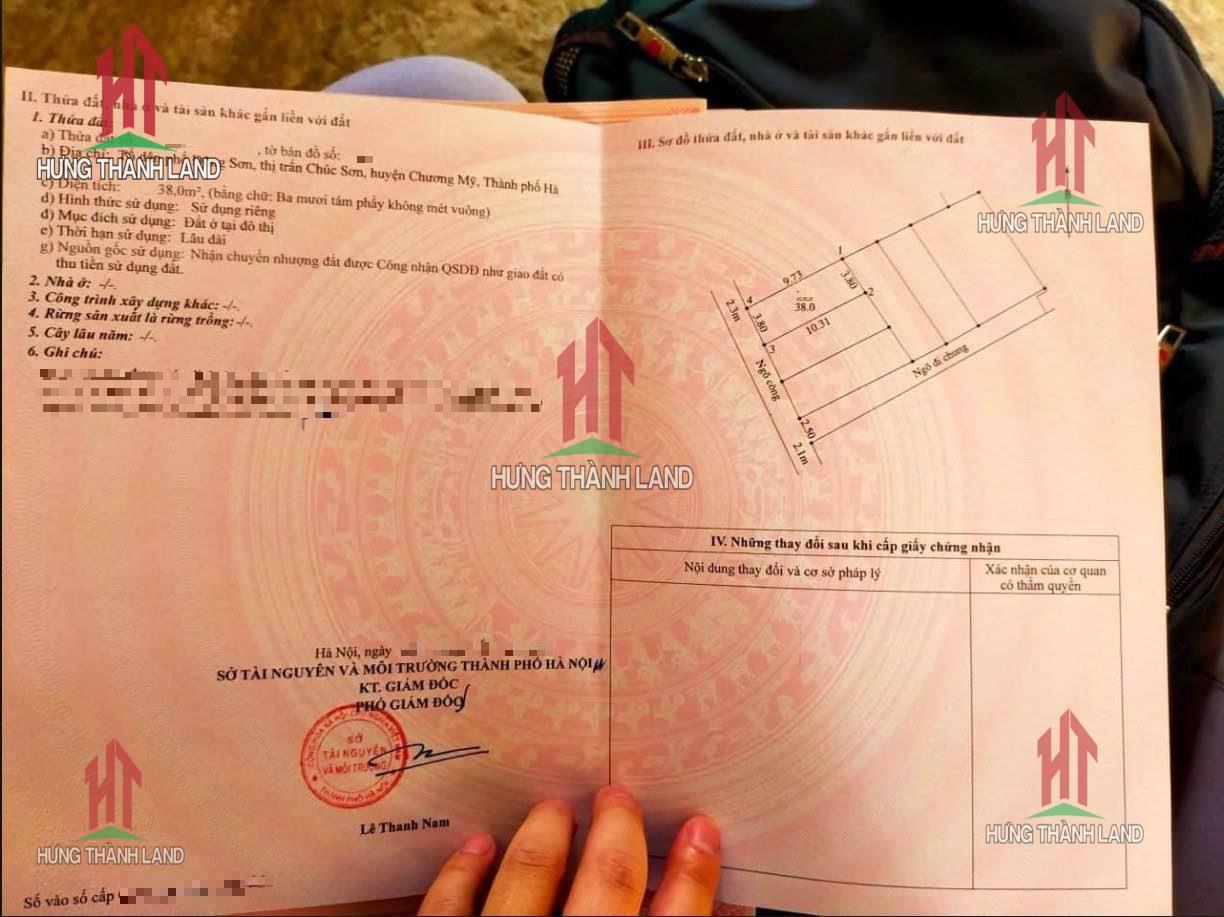 II. Thửa đất, nhà ở và tài sản khác gắn liền với đất
1. Thửa đất:
a) Thửa đất số: , tờ bản đồ số:
b) Địa chỉ: Sơn, thị trấn Chúc Sơn, huyện Chương Mỹ, Thành phố Hà
c) Diện tích: 38,0m², (bằng chữ: Ba mươi tám phẩy không mét vuông)
d) Hình thức sử dụng: Sử dụng riêng
đ) Mục đích sử dụng: Đất ở tại đô thị
e) Thời hạn sử dụng: Lâu dài
g) Nguồn gốc sử dụng: Nhận chuyển nhượng đất được Công nhận QSDĐ như giao đất có
thu tiền sử dụng đất.
2. Nhà ở: -/-.
3. Công trình xây dựng khác: -/-.
4. Rừng sản xuất là rừng trồng: -/-.
5. Cây lâu năm: -/-.
6. Ghi chú:
Hà Nội, ngày
SỞ TÀI NGUYÊN VÀ MÔI TRƯỜNG THÀNH PHỐ HÀ NỘI
KT. GIÁM ĐỐC
PHÓ GIÁM ĐỐC
CỘNG HÒA XÃ HỘI CHỦ NGHĨA VIỆT NAM
SỞ
TÀI NGUYÊN
VÀ MÔI TRƯỜNG
THÀNH PHỐ HÀ NỘI
Lê Thanh Nam
Số vào sổ cấp
III. Sơ đồ thửa đất, nhà ở và tài sản khác gắn liền với đất
B
1
9.73
3.80
2
4
38.0
2.3m
3.80
10.31
3
Ngõ cống
Ngõ đi chung
2.50
2.1m
IV. Những thay đổi sau khi cấp giấy chứng nhận
Nội dung thay đổi và cơ sở pháp lý
Xác nhận của cơ quan
có thẩm quyền
HT
HƯNG THÀNH LAND
HT
HƯNG THÀNH LAND
HT
HƯNG THÀNH LAND
HT
HƯNG THÀNH LAND
HT
HƯNG THÀNH LAND